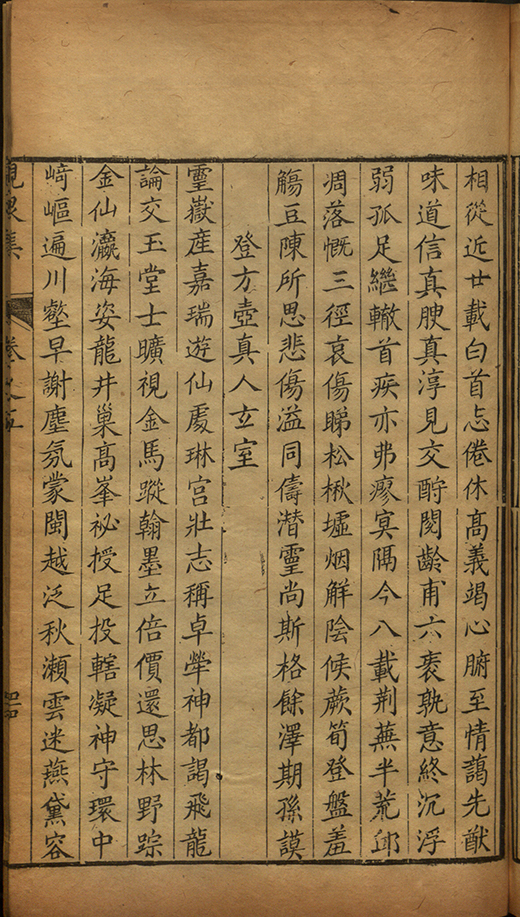 相從近廿載白首忘倦休髙義竭心腑至情藹先猷
味道信真腴真淳見交酧閱齡甫六袠孰意終沉浮
弱孤足繼轍首疾亦弗瘳冥隔今八載荆蕪半荒邱
凋落慨三徑哀傷睇松楸墟烟觧陰候蕨筍登盤羞
觴豆陳所思悲傷溢同儔潛靈尚斯格餘澤期孫謨
登方壺真人玄室
靈嶽産嘉瑞遊仙處琳宫壯志稱卓犖神都謁飛龍
論交玉堂士曠視金馬蹤翰墨立倍價還思林野踪
金仙瀛海姿龍井巢髙峯祕授足投轄凝神守環中
﨑嶇遍川壑早謝塵氛蒙閩越泛秋瀬雲迷燕黛容
峴泉集 卷之五